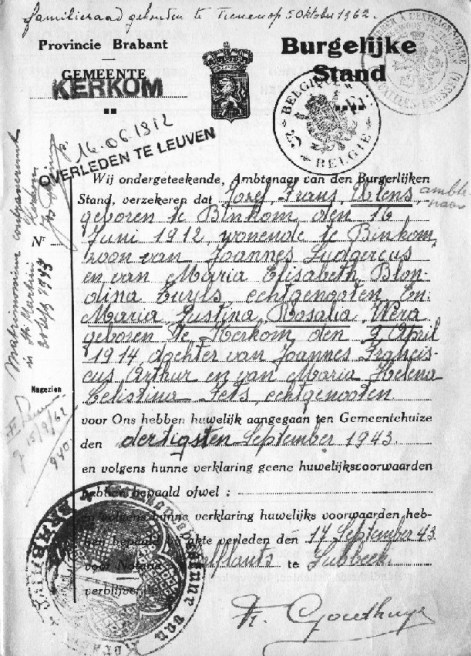 familieraad gehouden te Tienen op 5 Oktober 1962.
Provincie Brabant
GEMEENTE
KERKOM
Burgelijke
Stand
BELGIQUE
BELGIE
16.06.1912
OVERLEDEN TE LEUVEN
Wij ondergeteekende, Ambtenaar van den Burgerlijken
Stand, verzekeren dat Jozef Frans
geboren te Binkom, den 16
Juni 1912, wonende te Binkom,
zoon van Joannes Ludgercus
en van Maria Elisabeth Blon-
dina echtgenooten En
Maria Justina Rosalia
geboren te Kerkom, den 9 April
1914, dochter van Joannes Francis-
cus Arthur en van Maria Helena
Celistina echtgenooten
voor Ons hebben huwelijk aangegaan ten Gemeentehuize
den dertigsten September 1943.
en volgens hunne verklaring geene huwelijksvoorwaarden
hebben bepaald ofwel :
en volgens hunne verklaring huwelijks voorwaarden heb-
ben bepaald bij akte verleden den 14 September 43
voor Notaris te Lubbeek
verblijvende
N
Nagezien
Matrimonium contraxerunt